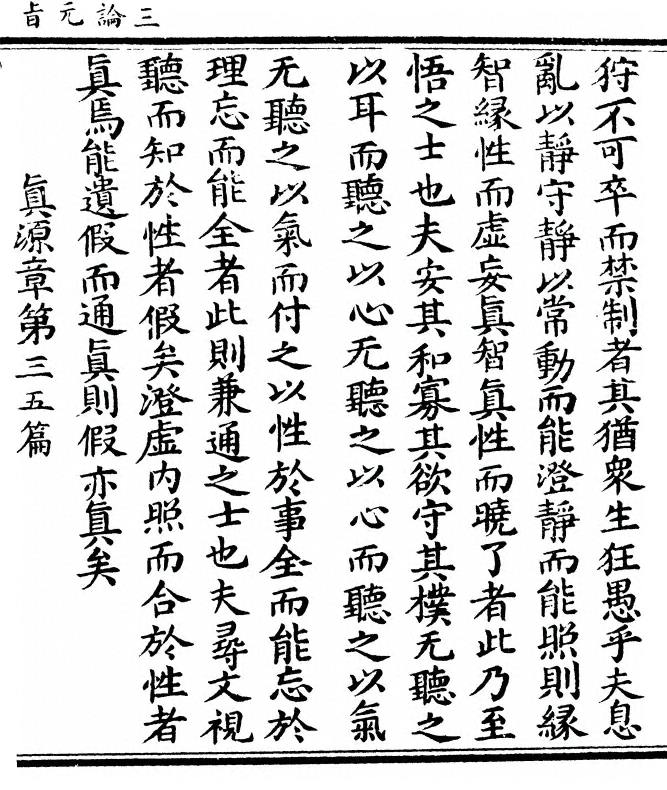 三論元旨
狩不可卒而禁制者其猶衆生狂愚乎夫息
亂以靜守靜以常動而能澄靜而能照則緣
智緣性而虛妄真智真性而曉了者此乃至
悟之士也夫安其和寡其欲守其樸无聽之
以耳而聽之以心无聽之以心而聽之以氣
无聽之以氣而付之以性於事全而能忘於
理忘而能全者此則兼通之士也夫尋文視
聽而知於性者假矣澄虛内照而合於性者
眞焉能遺假而通眞則假亦眞矣
眞源章第三五篇